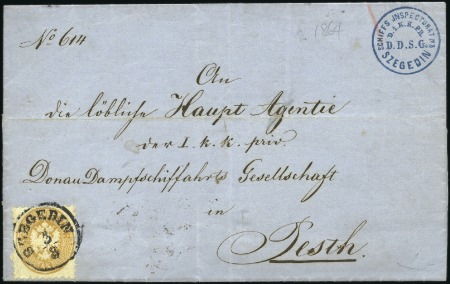 No 614
1864
SCHIFFS INSPECTORAT
D. I. K. K. P. R.
D. D. S. G.
SZEGEDIN
An
die löbliche Haupt Agentie
der I. k. k. priv.
Donau Dampfschiffahrts Gesellschaft
in
Pesth.
SZEGEDIN